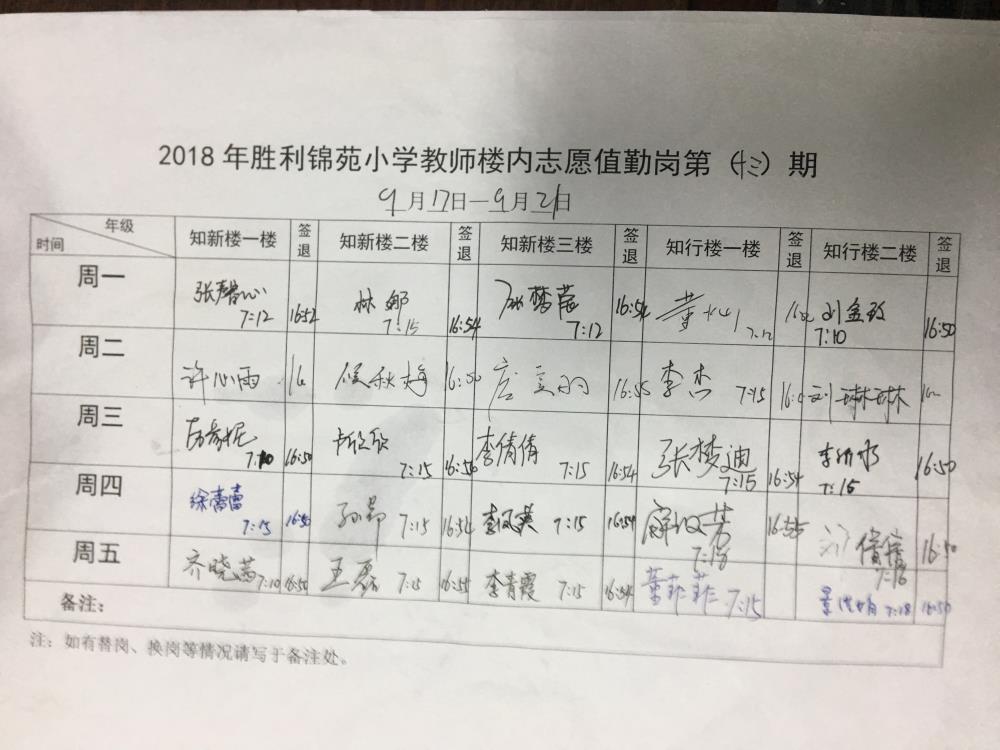 2018年胜利锦苑小学教师楼内志愿值勤岗第（十三）期
9月17日—9月21日
年级 时间 知新楼一楼 签退 知新楼二楼 签退 知新楼三楼 签退 知行楼一楼 签退 知行楼二楼 签退
周一 张馨心 7:12 16:52 林娜 7:15 16:54 7:12 16:54 7:12 刘金玫 7:10 16:50
周二 许心雨 16 侯秋梅 16:50 16:55 李杰 7:15 刘琳琳
周三 7:10 16:50 7:15 16:50 李倩倩 7:15 16:54 张梦迪 7:15 16:54 7:15 16:50
周四 徐蕾蕾 7:15 16:50 7:15 16:52 7:15 16:54 7:18 16:55 7:16 16:50
周五 齐晓茜 7:10 16:50 王磊 7:15 16:55 李青霞 7:15 16:54 董菲菲 7:15 7:18 16:50
备注：
注：如有替岗、换岗等情况请写于备注处。